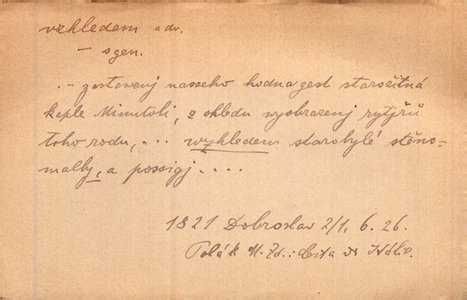 vzhledem adv.
– s gen.
.. zastavenj nasseho hodna gest starožitná
kaple Minutoli, z ohledu wyobrazenj rytjřů
toho rodu, ... wzhledem starobylé stěno-
malby, a possigj ....
1821 Dobroslav 2/1, 6. 26.
Polák M. Zd.: Cesta do Itálie.